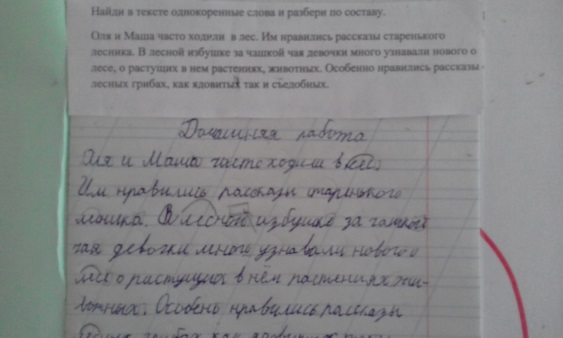 Найди в тексте однокоренные слова и разбери по составу.
Оля и Маша часто ходили в лес. Им нравились рассказы старенького
лесника. В лесной избушке за чашкой чая девочки много узнавали нового о
лесе, о растущих в нем растениях, животных. Особенно нравились рассказы
лесных грибах, как ядовитых так и съедобных.
Домашняя работа
Оля и Маша часто ходили в лес.
Им нравились рассказы
В лесной избушке за
чая девочки много узнавали нового о
о растущих в нём растениях жи-
вотных. Особень нравились рассказы
грибах как